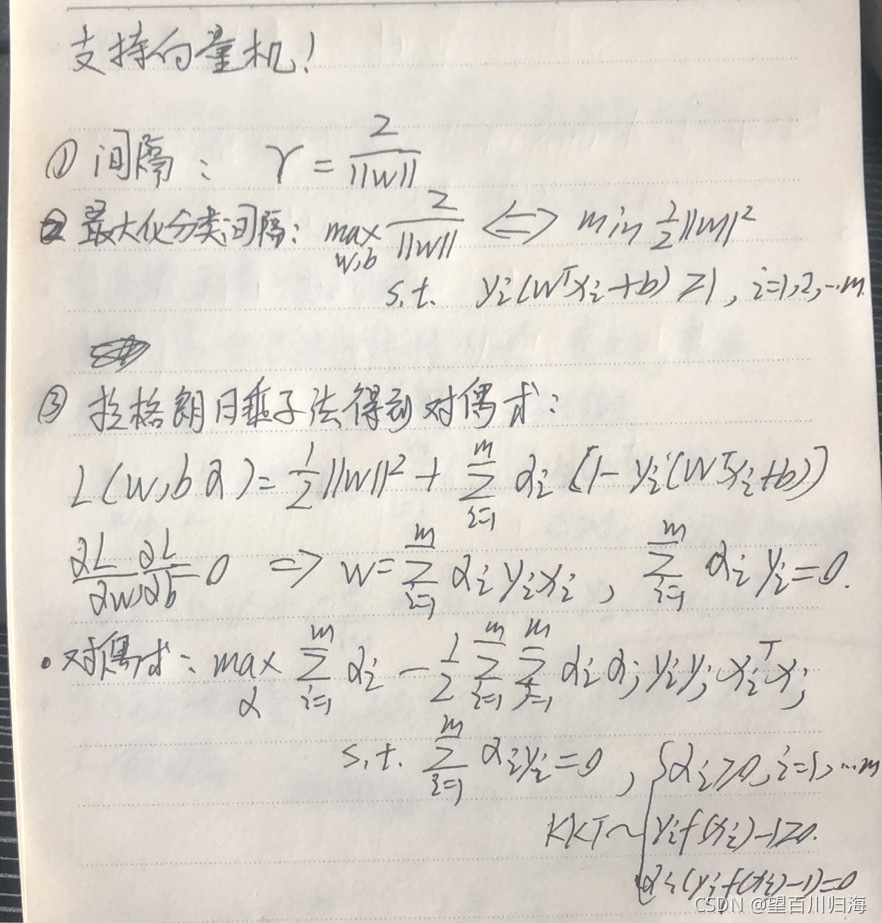 支持向量机!
① 间隔: γ = 2/||w||
② 最大化分类间隔: max_{w,b} 2/||w|| ⇔ min 1/2||w||²
s.t. yᵢ(wᵀxᵢ+b) ≥1, i=1,2,...m.
③ 拉格朗日乘子法得到对偶式:
L(w,b,α) = 1/2||w||² + Σ_{i=1}^{m} αᵢ(1-yᵢ(wᵀxᵢ+b))
∂L/∂w, ∂L/∂b = 0 ⇒ w = Σ_{i=1}^{m} αᵢyᵢxᵢ, Σ_{i=1}^{m} αᵢyᵢ=0.
·对偶式: max_α Σ_{i=1}^{m} αᵢ - 1/2 Σ_{i=1}^{m} Σ_{j=1}^{m} αᵢαⱼyᵢyⱼxᵢᵀxⱼ
s.t. Σ_{i=1}^{m} αᵢyᵢ=0, { αᵢ≥0, i=1,...m
KKT~ yᵢf(xᵢ)-1≥0.
αᵢ(yᵢf(xᵢ)-1)=0
CSDN @望百川归海